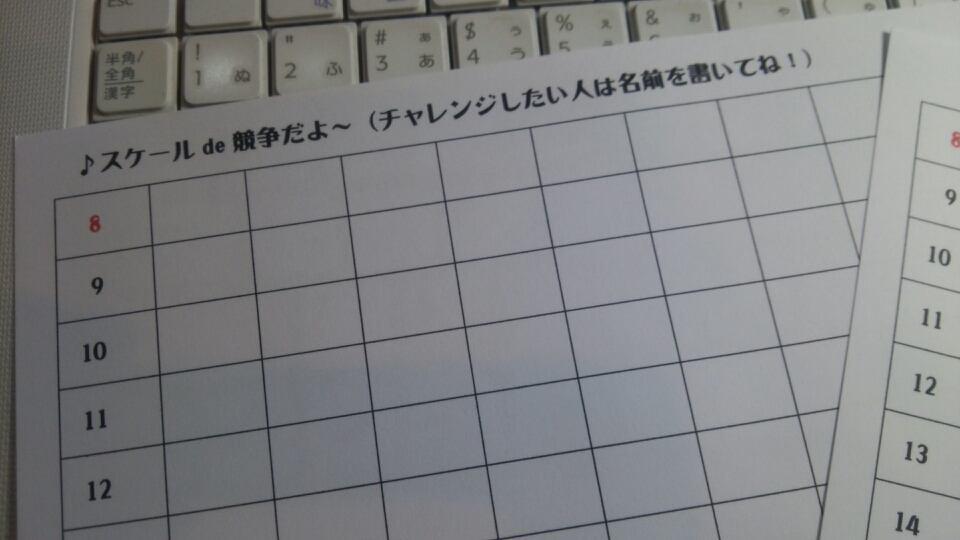 Esc
半角/
全角
漢字
! 
1 ぬ
"
2 ふ
# ぁ
3 あ
$ ぅ
4 う
% ぇ
5
& ぉ
♪スケール de 競争だよ～（チャレンジしたい人は名前を書いてね！）
8
9
10
11
12
8
9
10
11
12
13
14